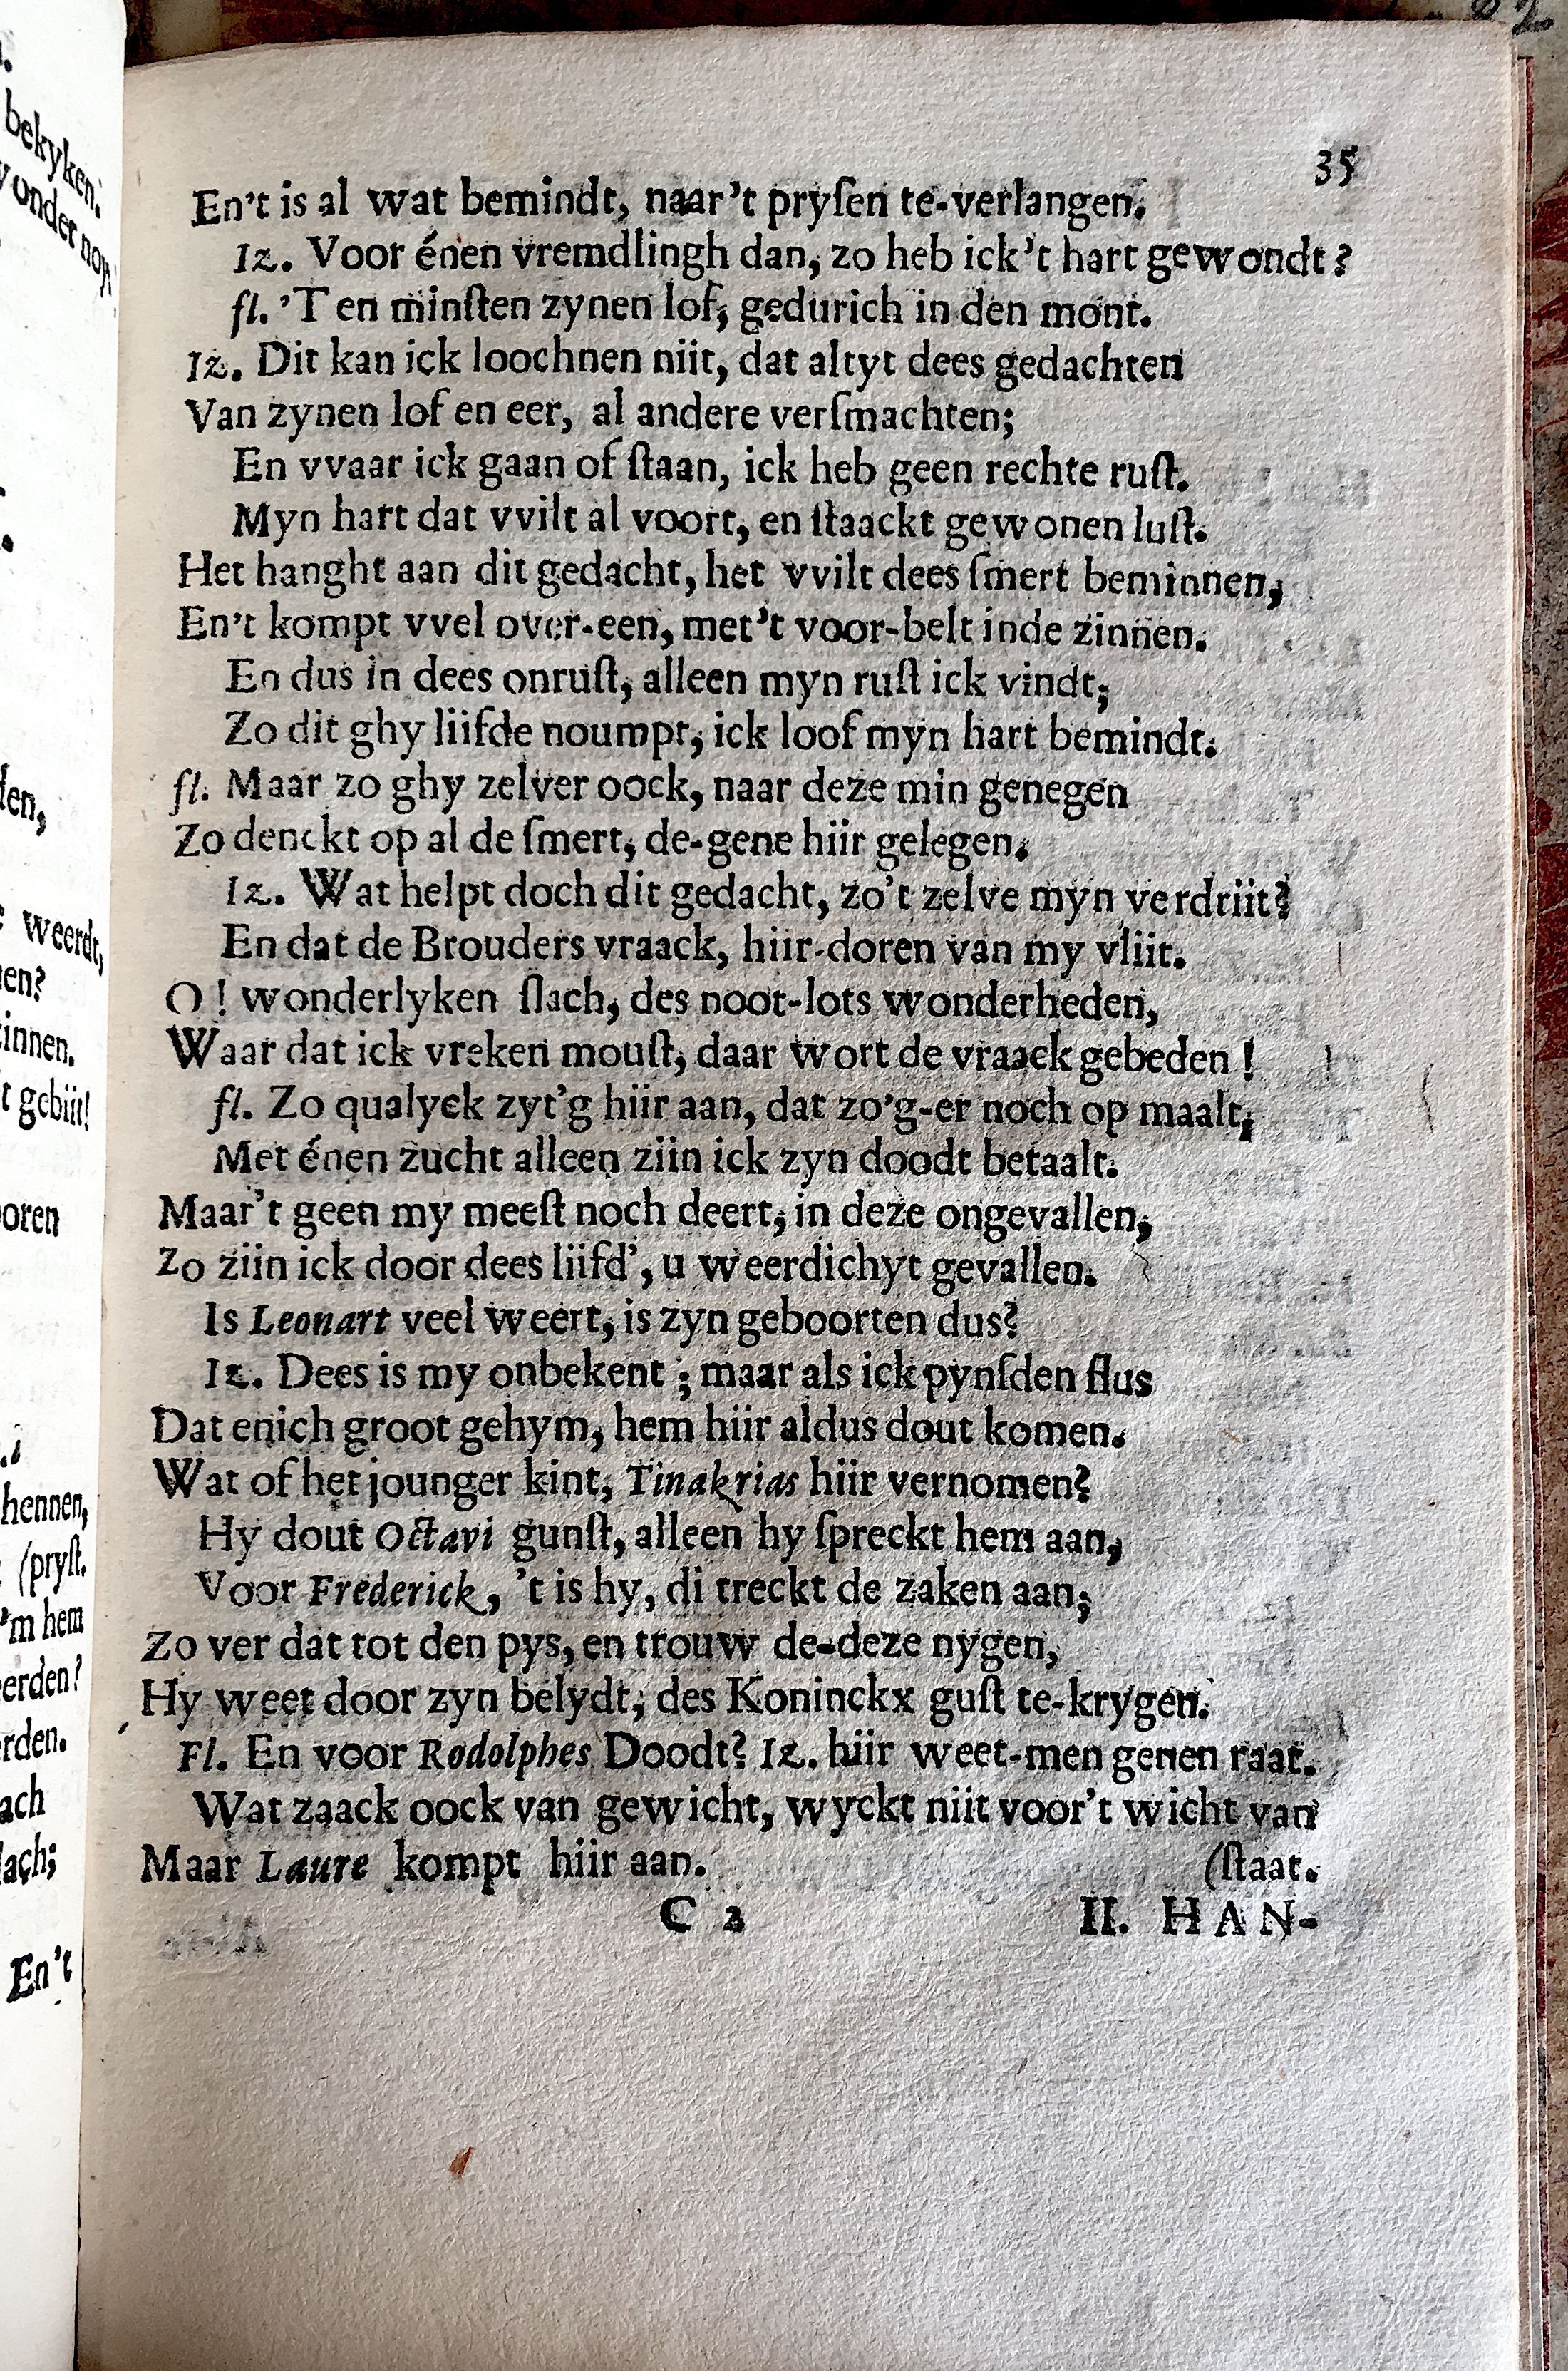 35
En't is al wat bemindt, naar't pryſen te-verlangen.
Iz. Voor énen vremdlingh dan, zo heb ick't hart gewondt?
fl. 'T en minſten zynen lof, gedurich in den mont.
Iz. Dit kan ick loochnen niit, dat altyt dees gedachten
Van zynen lof en eer, al andere verſmachten;
En vvaar ick gaan of ſtaan, ick heb geen rechte ruſt.
Myn hart dat vvilt al voort, en ſtaackt gewonen luſt.
Het hanght aan dit gedacht, het vvilt dees ſmert beminnen,
En't kompt vvel over-een, met't voor-belt inde zinnen.
En dus in dees onruſt, alleen myn ruſt ick vindt;
Zo dit ghy liifde noumpt, ick loof myn hart bemindt.
fl. Maar zo ghy zelver oock, naar deze min genegen
Zo denckt op al de ſmert, de-gene hiir gelegen.
Iz. Wat helpt doch dit gedacht, zo't zelve myn verdriit?
En dat de Brouders vraack, hiir-doren van my vliit.
O! wonderlyken ſlach, des noot-lots wonderheden,
Waar dat ick vreken mouſt, daar wort de vraack gebeden!
fl. Zo qualyck zyt'g hiir aan, dat zo'g-er noch op maalt,
Met énen zucht alleen ziin ick zyn doodt betaalt.
Maar't geen my meeſt noch deert, in deze ongevallen,
Zo ziin ick door dees liifd', u weerdichyt gevallen.
Is Leonart veel weert, is zyn geboorten dus?
Iz. Dees is my onbekent; maar als ick pynſden flus
Dat enich groot gehym, hem hiir aldus dout komen.
Wat of het jounger kint, Tinakrias hiir vernomen?
Hy dout Octavi gunſt, alleen hy ſpreckt hem aan,
Voor Frederick, 't is hy, di treckt de zaken aan;
Zo ver dat tot den pys, en trouw de-deze nygen,
Hy weet door zyn belydt, des Koninckx guſt te-krygen.
Fl. En voor Rodolphes Doodt? Iz. hiir weet-men genen raat.
Wat zaack oock van gewicht, wyckt niit voor't wicht van
Maar Laure kompt hiir aan. (ſtaat.
C 2 II. HAN-
bekyken.
wonder nop.
weerdt,
innen.
t gebiit!
oren
hennen,
(pryſt.
'm hem
eerden?
rden.
En't